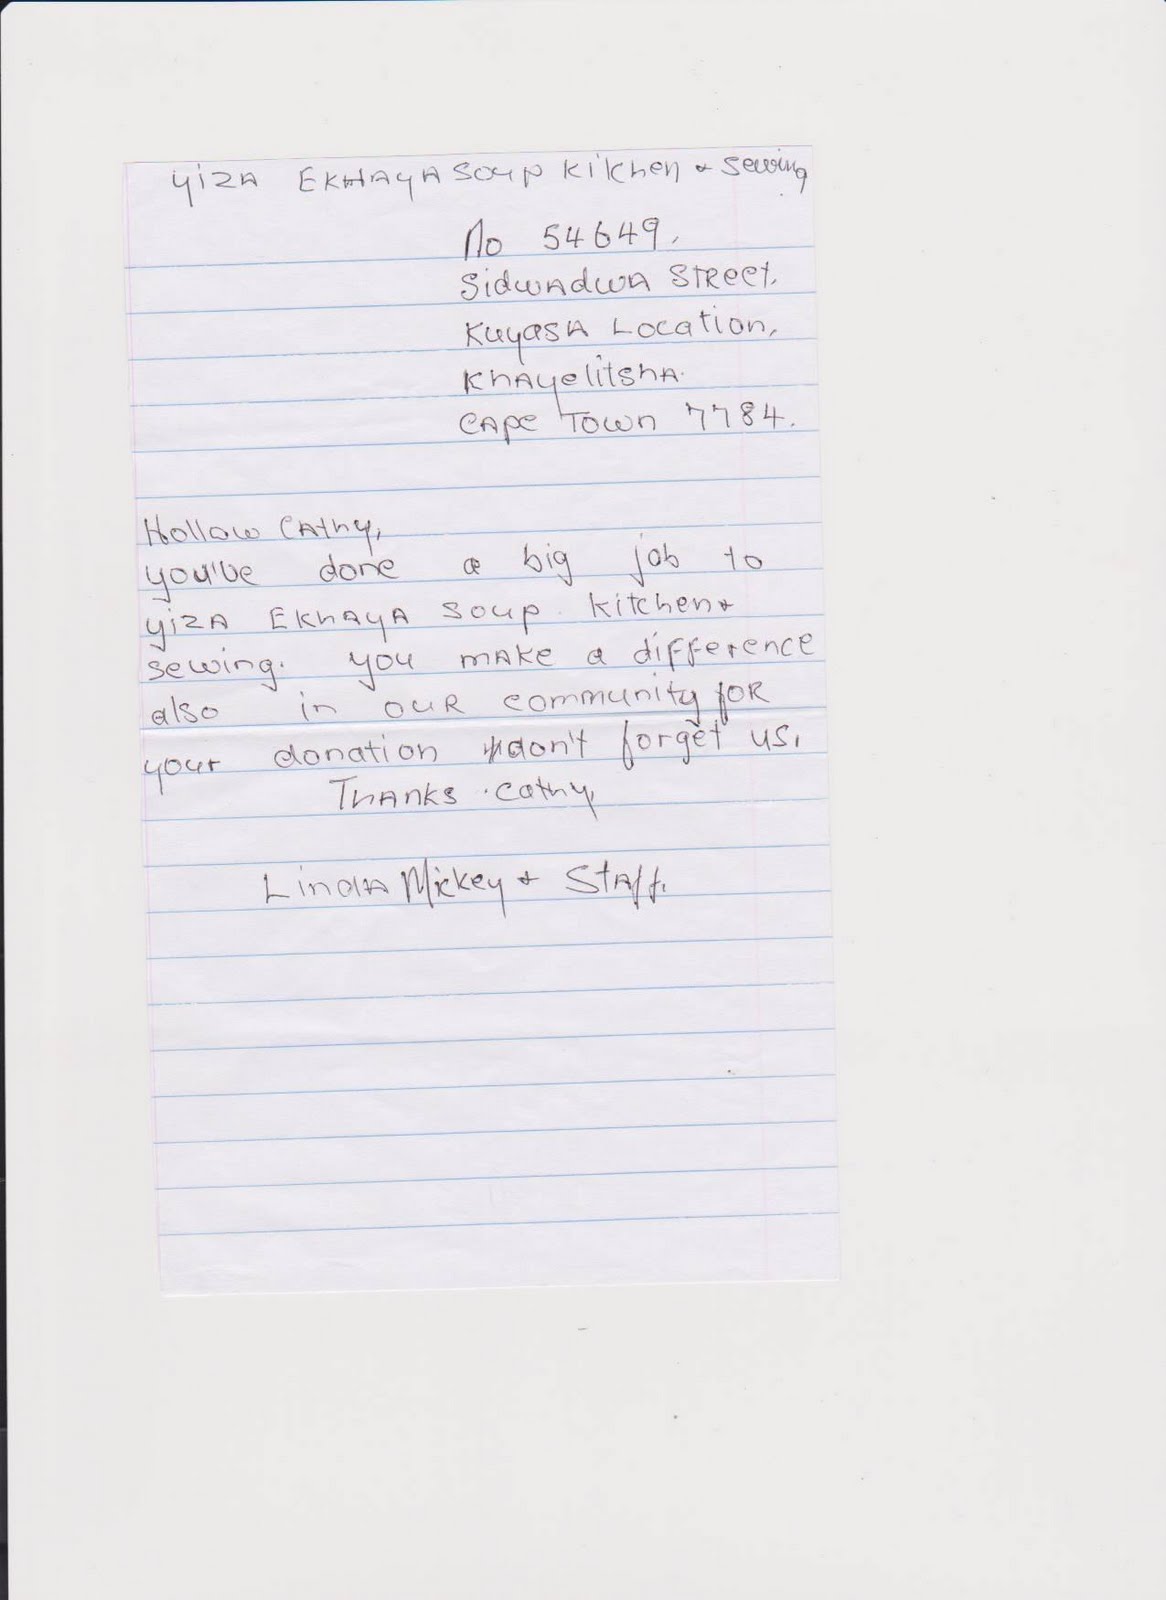 yiZA EKHAYA SOUP Kitchen & Sewing
No 54649,
SidwAdwA STReet,
KuyasA Location,
KhAyelitshA.
CApe Town 7784.
Hollow CAthy,
you've done a big job to
yiZA EKhAyA Soup. Kitchen &
sewing. you mAKe a difference
also in our community for
your donation don't forget us.
THANKS. Cathy,
LindA Mickey & StAff.